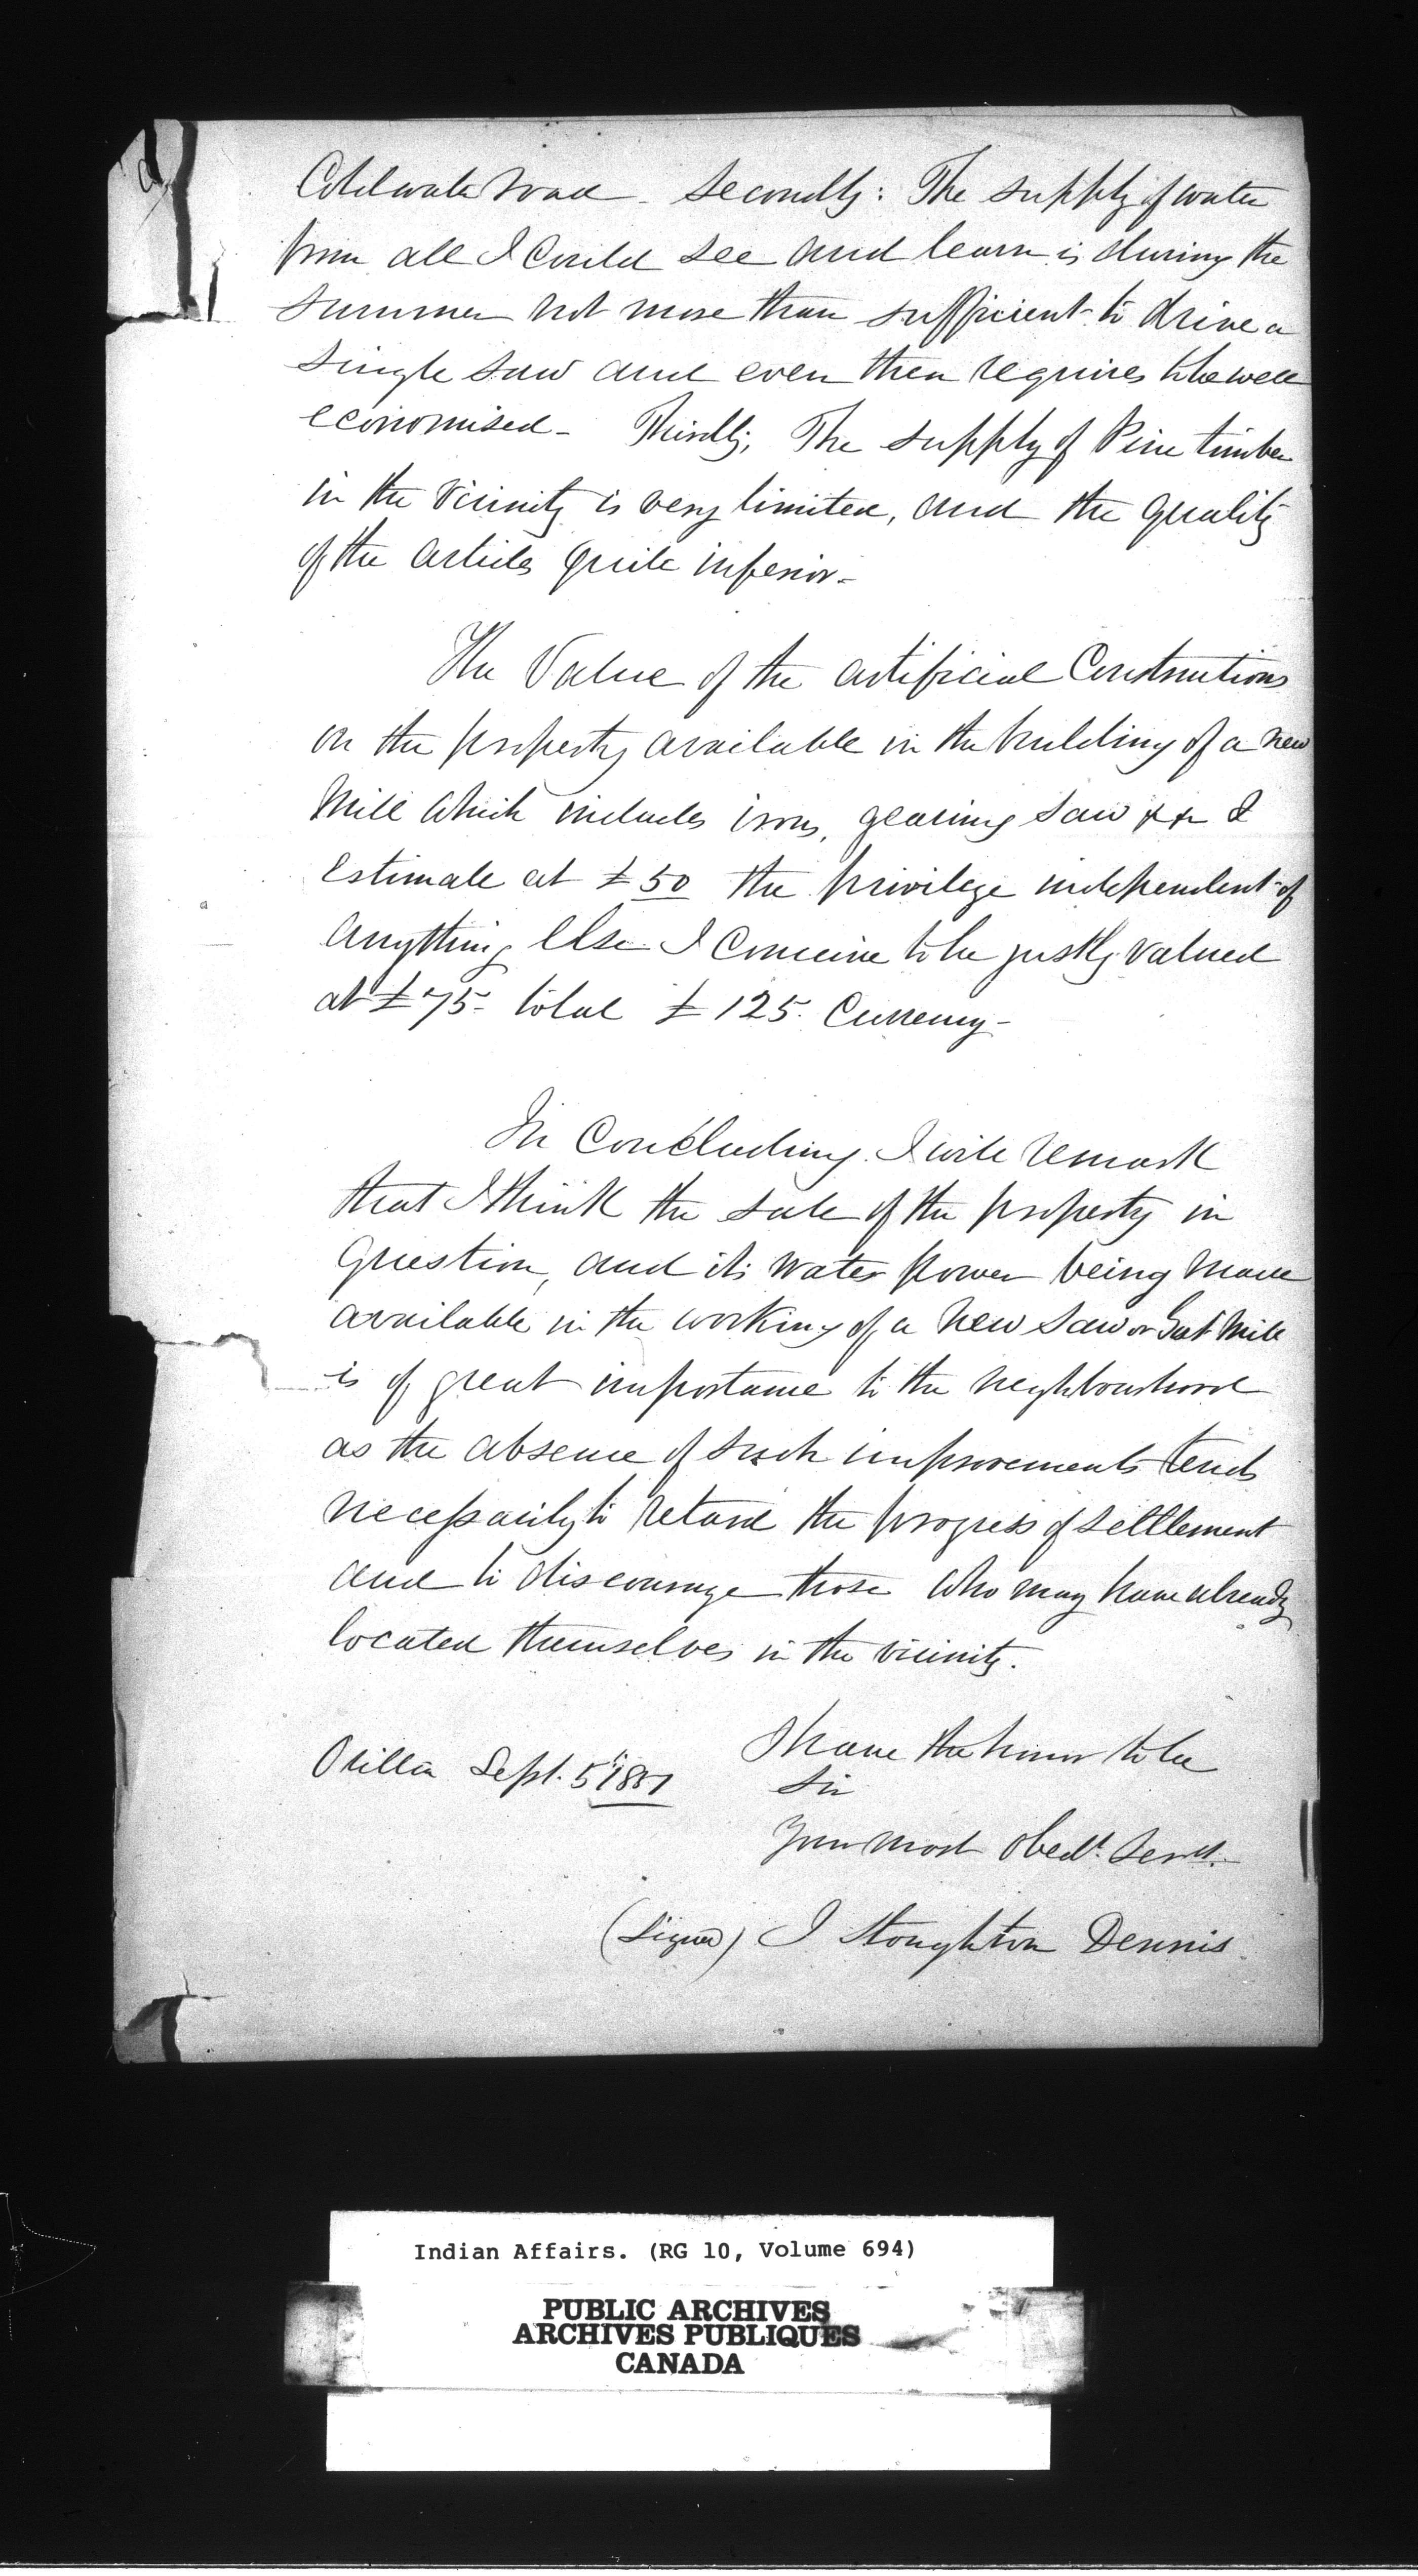 Coldwater road - Secondly: The supply of water
from all I could see and learn is during the
Summer not more than sufficient to drive a
single saw and even then requires to be well
economised - Thirdly; The supply of Pine timber
in the vicinity is very limited, and the quality
of the article quite inferior -
The Value of the artificial Constructions
on the property available in the building of a new
Mill which includes irons, gearing saw &c I
estimate at £50 the privilege independent of
anything else I conceive to be justly valued
at £75 - total £125. Currency -
In Concluding I will remark
that I think the sale of the property in
Question, and its water power being made
available in the working of a new Saw or Grist Mill
is of great importance to the neighbourhood
as the absence of such improvements tends
necessarily to retard the progress of settlement
and to discourage those who may have already
located themselves in the vicinity.
I have the honor to be
Orillia Sept. 5th 1851
Sir
Your most Obedt. Servt.
(Signed) J Stoughton Dennis
Indian Affairs. (RG 10, Volume 694)
PUBLIC ARCHIVES
ARCHIVES PUBLIQUES
CANADA